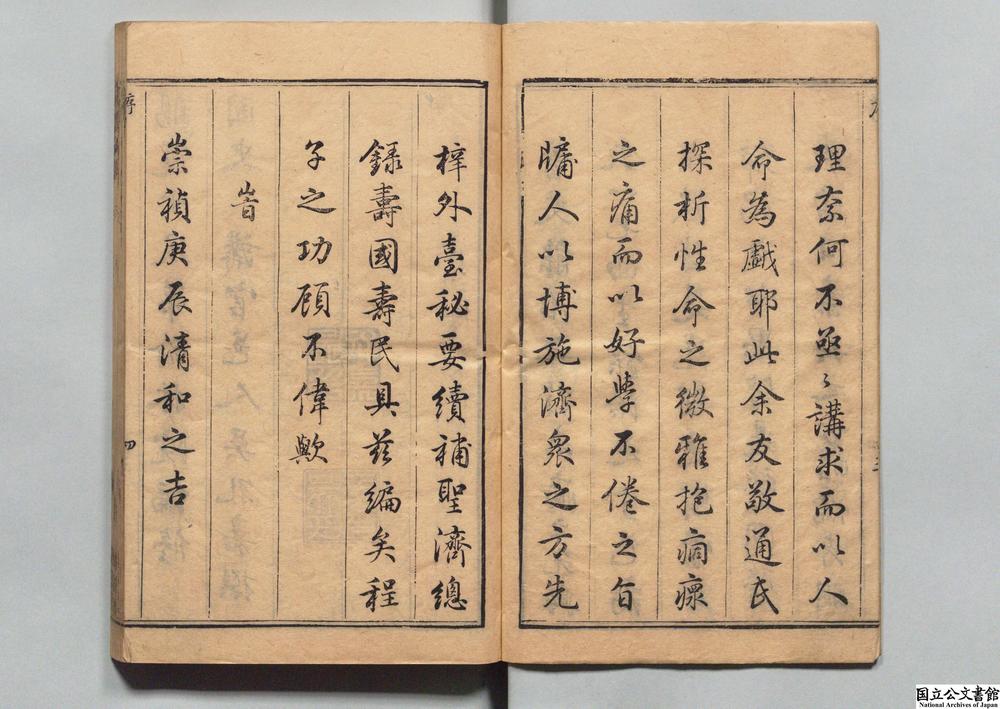 理奈何不亟〻講求而以人
命為戲耶此余友敬通氏
探析性命之微雅抱痌瘝
之痛而以好學不倦之自
牖人以博施濟衆之方先
梓外臺秘要續補聖濟總
錄壽國壽民具茲編矣程
子之功顧不偉歟
旹
崇禎庚辰清和之吉
序
四
国立公文書館
National Archives of Japan